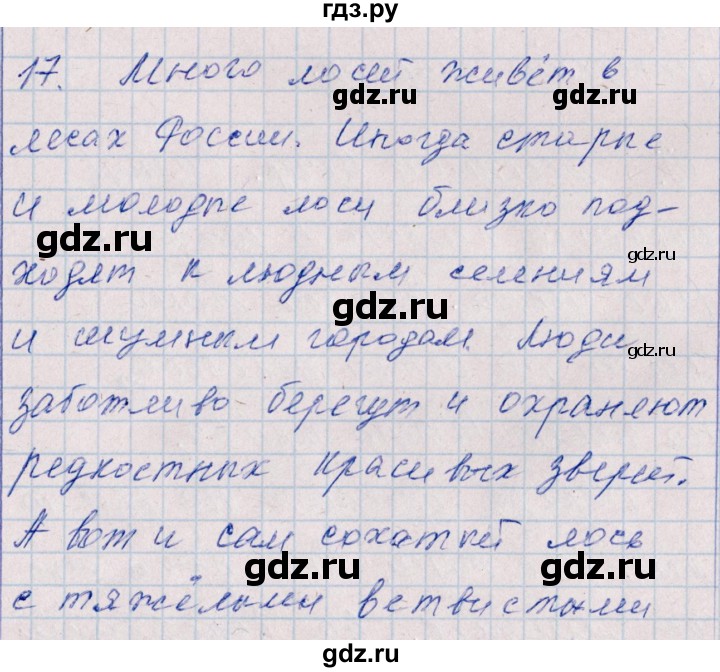 гдз.ру
17. Много лосей живёт в
лесах России. Иногда старые
и молодые лоси близко под-
ходят к людным селениям
и шумным городам. Люди
заботливо берегут и охраняют
редкостных красивых зверей.
А вот и сам сохатый лось
с тяжёлыми ветвистыми
gdz.ru
gdz.ru
gdz.ru
gdz.ru
gdz.ru
gdz.ru
gdz.ru
gdz.ru
gdz.ru
gdz.ru